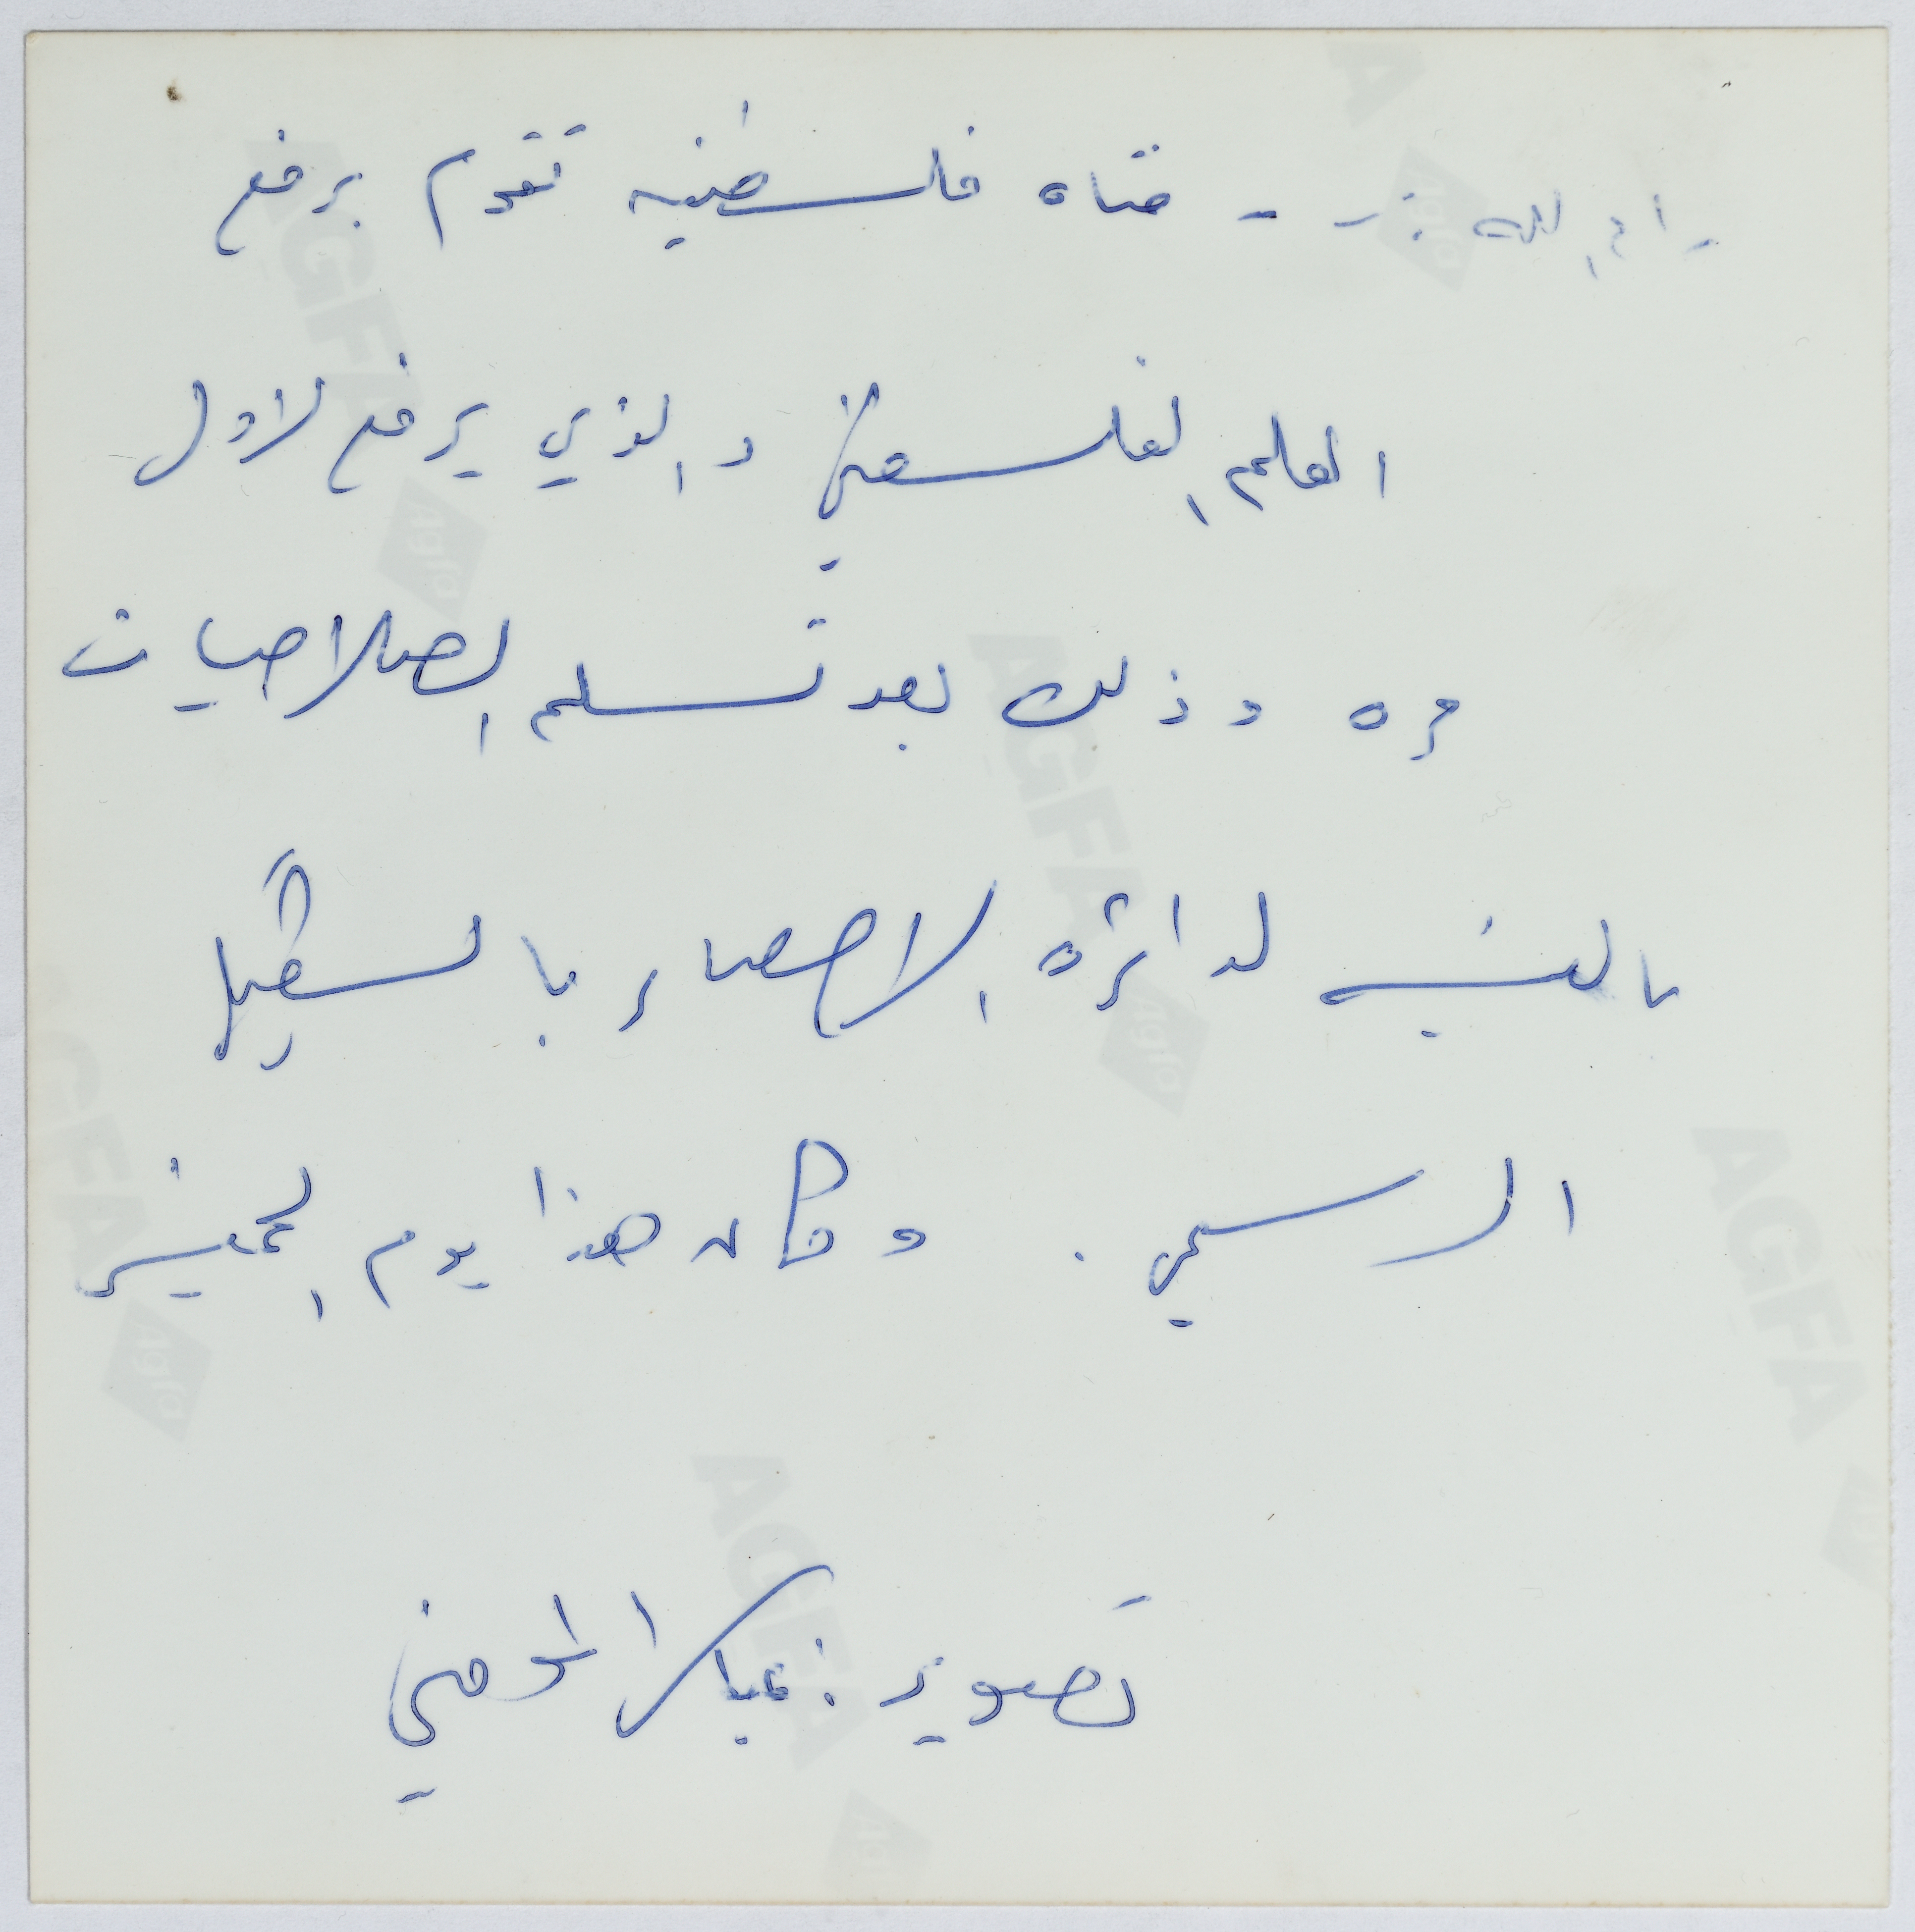 رام الله - فتاه فلسطينيه تقوم برفع
العلم الفلسطيني والذي يرفع لاول
مره وذلك بعد تسلم الصلاحيات
بالنسبه لدائره الاحصاء بالشكل
الرسمي . وكان هذا يوم الخميس
تصوير :
AGFA
AGFA
AGFA
AGFA
AGFA